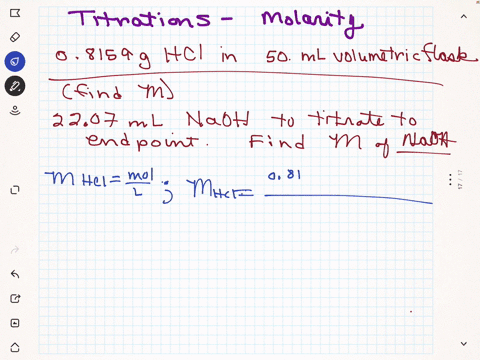 Titrations - Molarity
0.8159 g HCl in 50. mL volumetric flask
(find M)
22.07 mL NaOH to titrate to
endpoint. Find M of NaOH
M HCl = mol/L ; M HCl = 0.81
17 / 17